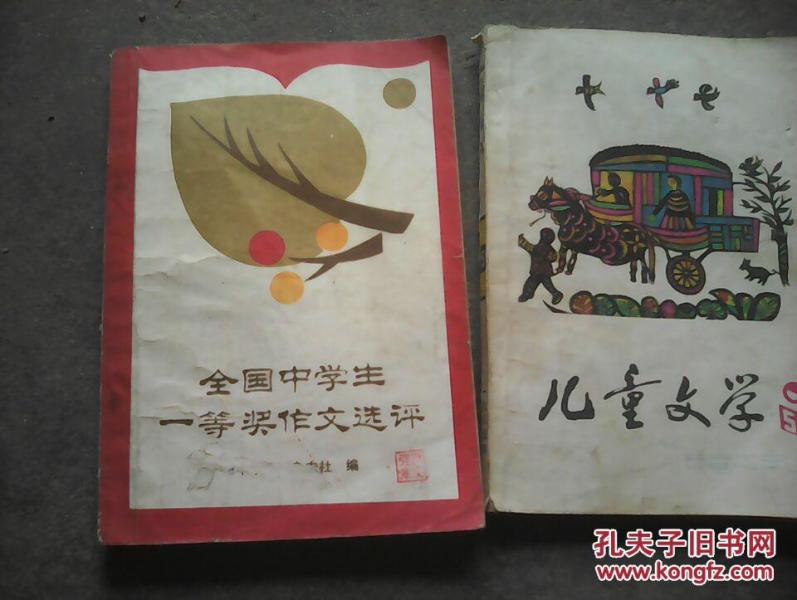 全国中学生
一等奖作文选评
社 编
儿童文学
5
孔夫子旧书网
www.kongfz.com